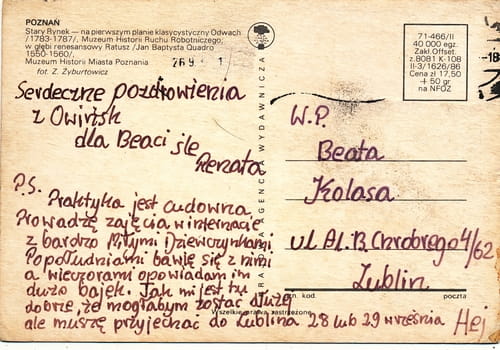 POZNAŃ
Stary Rynek — na pierwszym planie klasycystyczny Odwach
/1783-1787/, Muzeum Historii Ruchu Robotniczego;
w głębi renesansowy Ratusz /Jan Baptysta Quadro
1550-1560/,
Muzeum Historii Miasta Poznania
fot. Z. Żyburtowicz
26 9 1
71-466/II
40 000 egz.
Zakł. Offset.
z.8081 K-108
II-3/1626/86
Cena zł 17,50
+ 50 gr
na NFOZ
-18
Serdeczne pozdrowienia
z Owińsk
dla Beaci śle
Renata
P.S.
Praktyka jest cudowna
Prowadzę zajęcia w internacie
z bardzo Miłymi Dziewczynkami
Popołudniami bawię się z nimi
a wieczorami opowiadam im
dużo bajek. Jak mi jest tu
dobrze, że mogłabym zostać dłużej
ale muszę przyjechać do Lublina 28 lub 29 września Hej
AGENCJA WYDAWNICZA
W.P.
Beata
Kolasa
ul Al. B. Chrobrego 4/62
Lublin
kod. poczta
Wszelkie prawa zastrzeżone